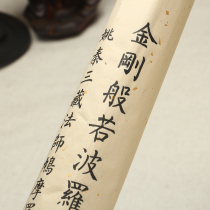 金剛般若波羅
姚秦三藏法師鳩摩